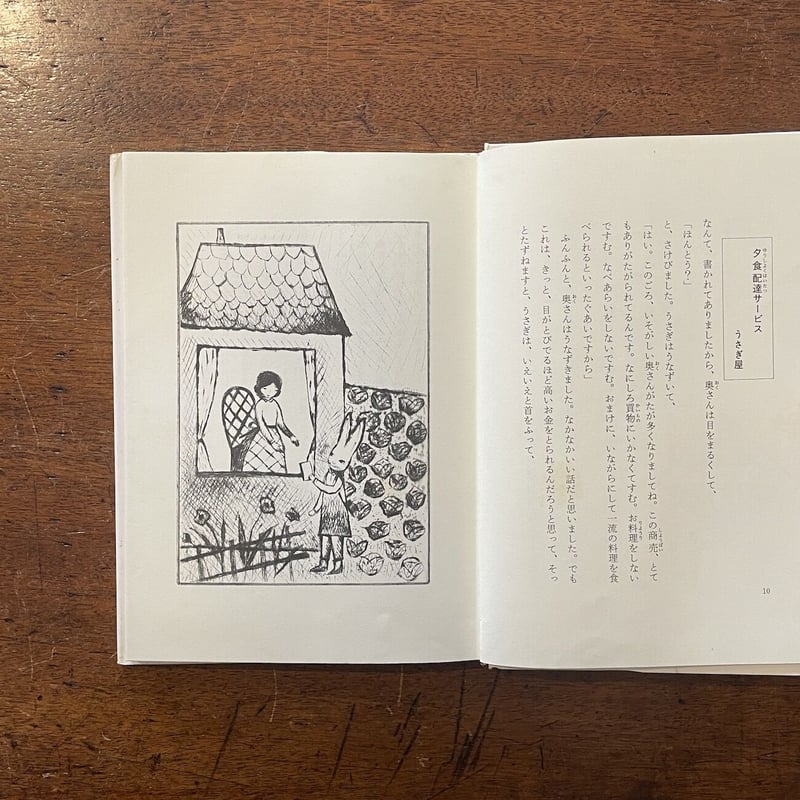 夕食配達サービス
うさぎ屋
なんて、書かれてありましたから、奥さんは目をまるくして、
「ほんとう？」
と、さけびました。うさぎはうなずいて、
「はい。このごろ、いそがしい奥さんがたが多くなりましてね。この商売、とて
もありがたがられてるんです。なにしろ買物にいかなくてすむ。お料理をしない
ですむ。なべあらいをしないですむ。おまけに、いながらにして一流の料理を食
べられるといったぐあいですから」
ふんふんと、奥さんはうなずきました。なかなかいい話だと思いました。でも
これは、きっと、目がとびでるほど高いお金をとられるんだろうと思って、そっ
とたずねますと、うさぎは、いえいえと首をふって、
10